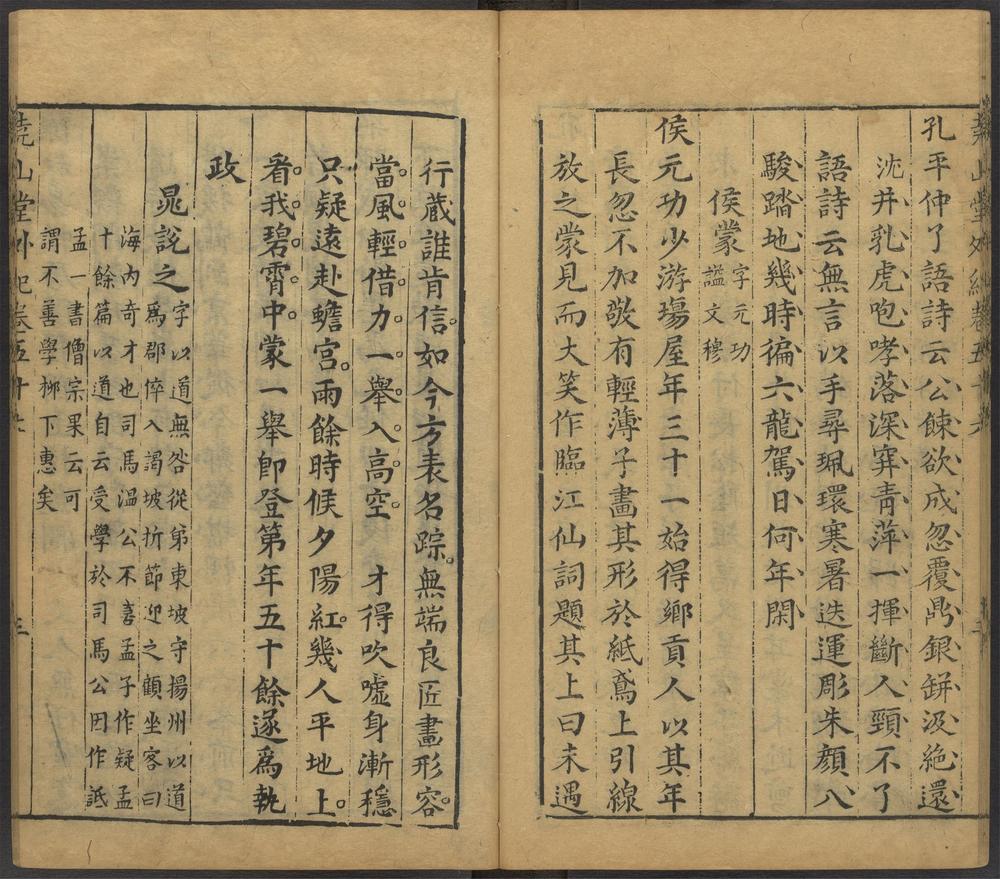 孔平仲了語詩云公餗欲成忽覆鼎銀缾汲絶還
沈井乳虎咆哮落深穽青萍一揮斷人頸不了
語詩云無言以手尋珮環寒暑迭運彫朱顔八
駿踏地幾時徧六龍駕日何年閑
侯蒙
字元功
謚文穆
侯元功少游塲屋年三十一始得鄉貢人以其年
長忽不加敬有輕薄子畫其形於紙鳶上引線
放之蒙見而大笑作臨江仙詞題其上曰未遇
行藏誰肯信如今方表名踪無端良匠畫形容
當風輕借力一舉入高空 才得吹嘘身漸穩
只疑遠赴蟾宮雨餘時候夕陽紅幾人平地上
看我碧霄中蒙一舉卽登第年五十餘遂爲執
政
晁說之
字以道無咎從弟東坡守揚州以道
爲郡倅入謁坡折節迎之顧坐客曰
海内奇才也司馬温公不喜孟子作疑孟
十餘篇以道自云受學於司馬公因作詆
孟一書僧宗果云可
謂不善學柳下惠矣
堯山堂外紀卷五十